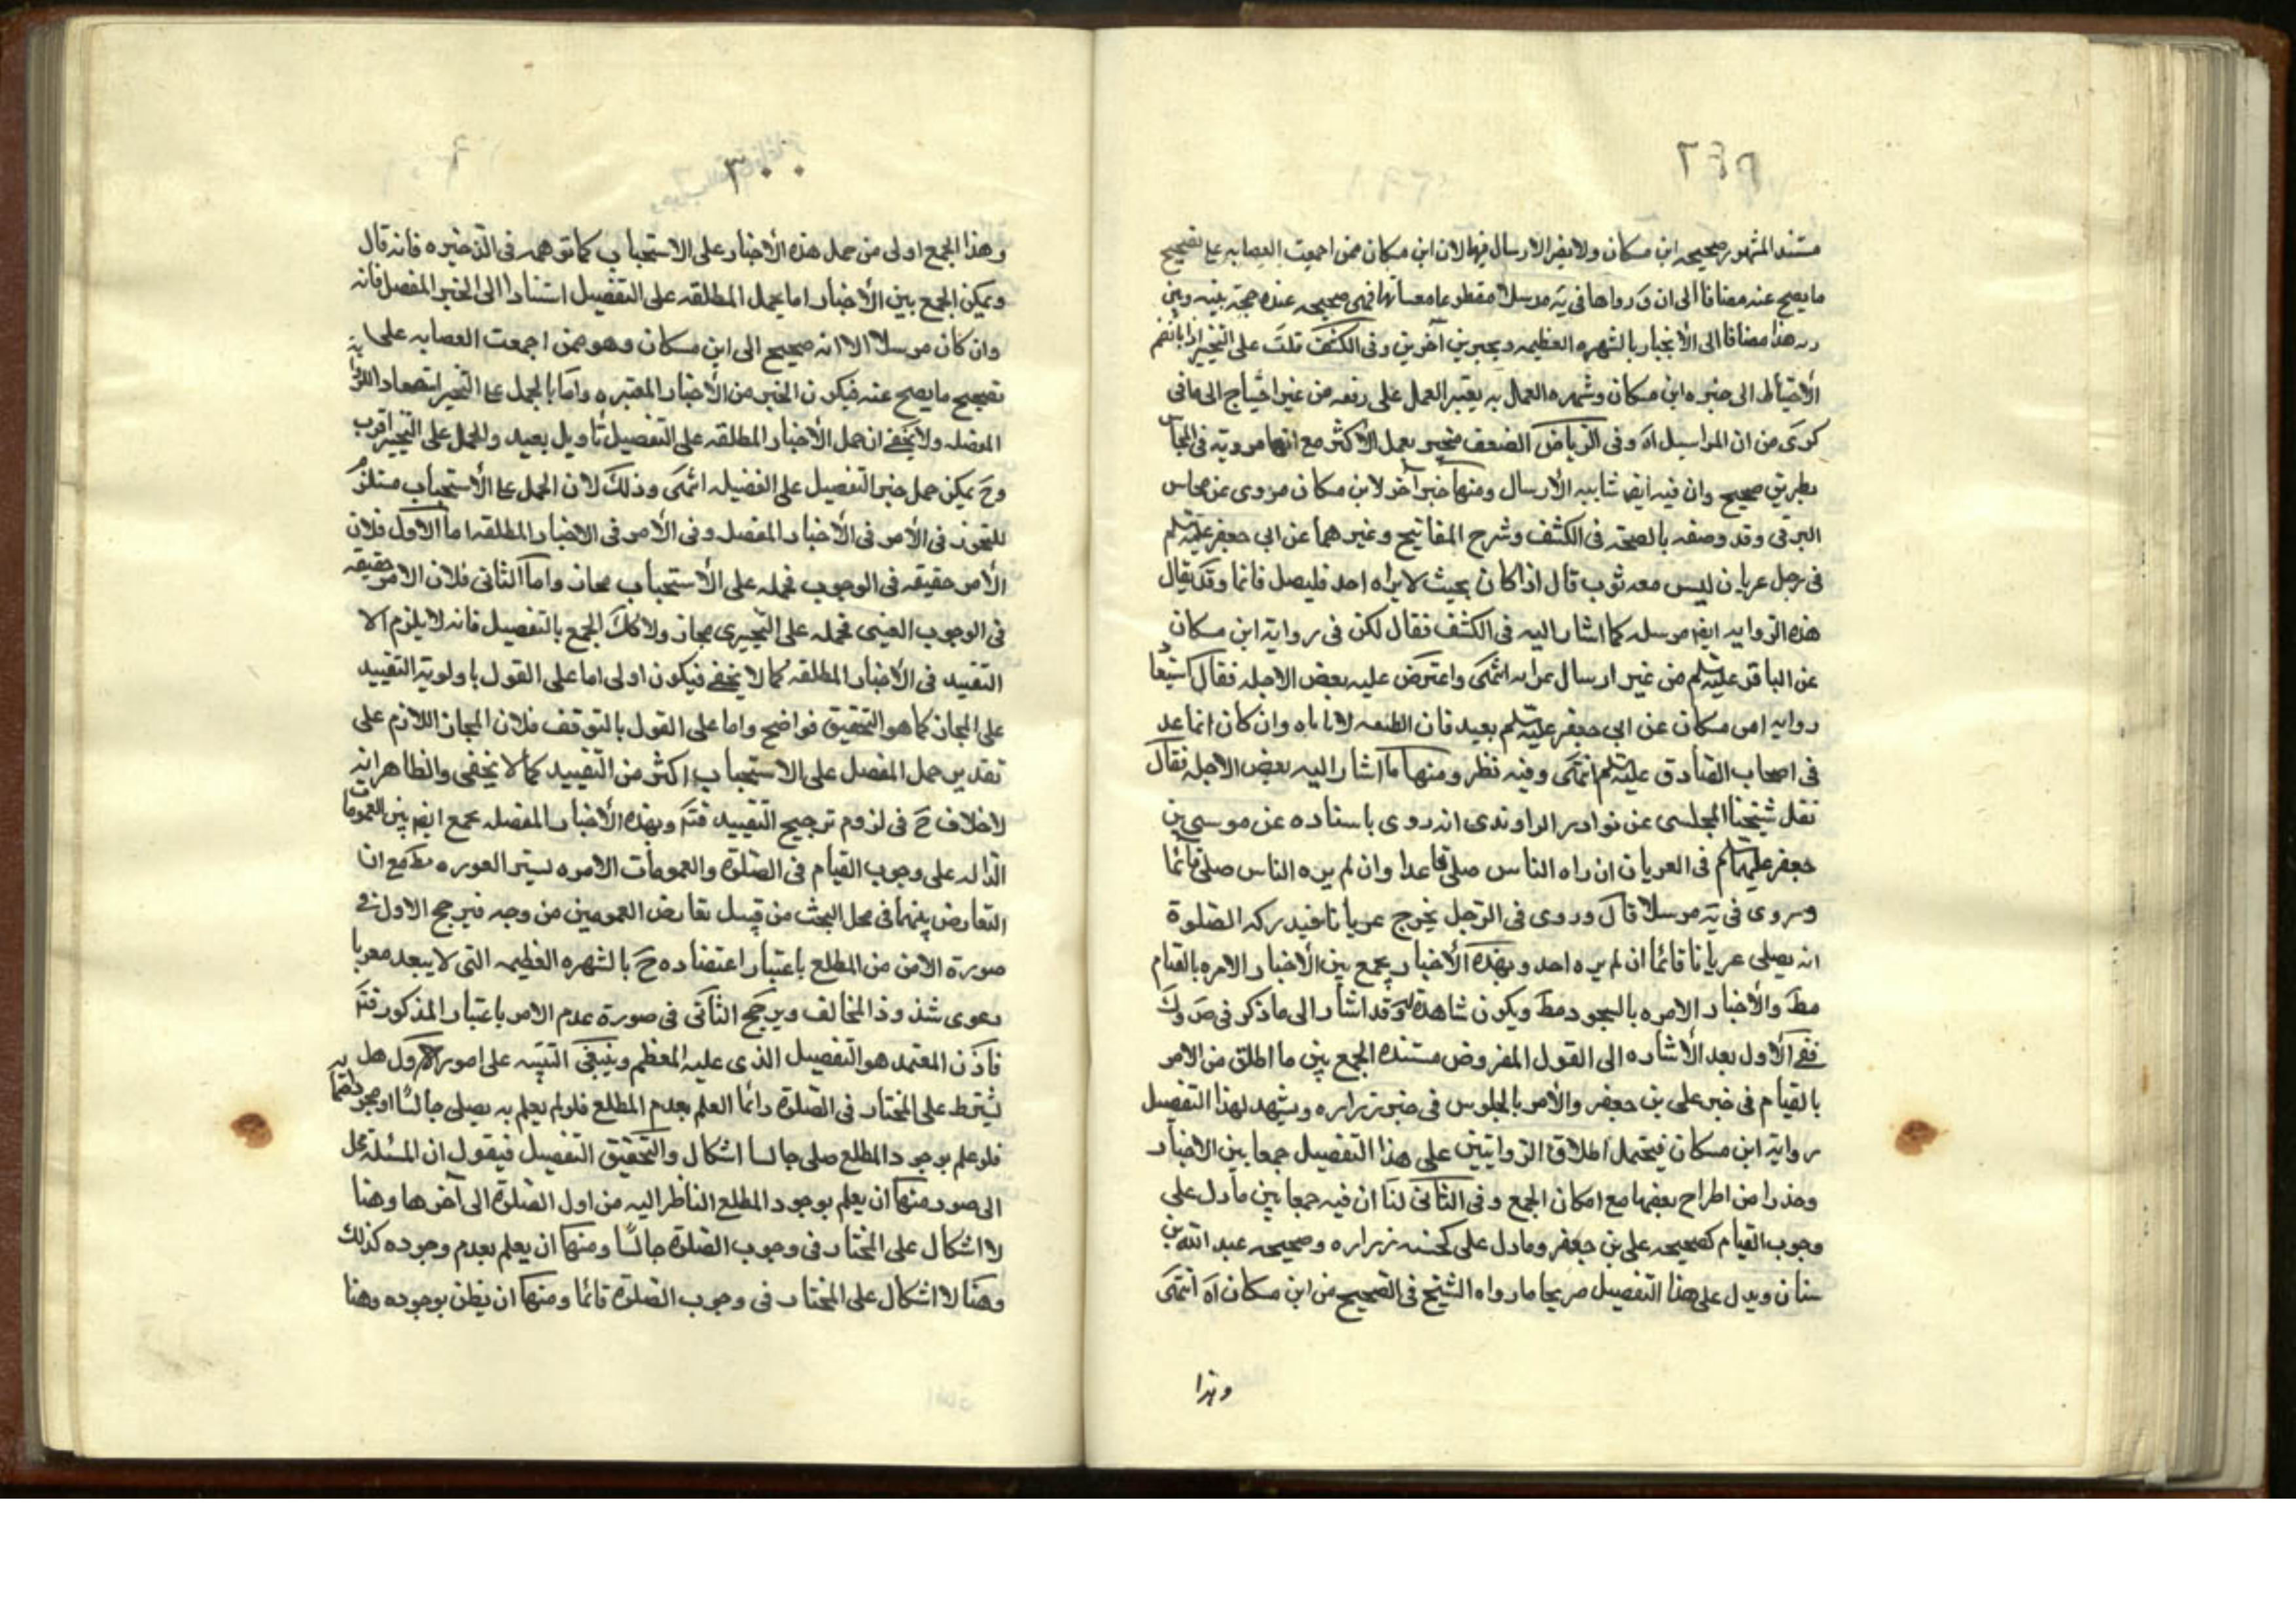 ٢٩٩
مستند المشهور صحيحه ابن مسكان ولا يضر الارسال فيها لان ابن مسكان ممن اجمعت العصابه على تصحيح
ما يصح عنه مضافا الى ان رواها في يه مرسلا مقطوعا معساتها فهي صحيحه عنده حجة بينه وبين
ربه هذا مضافا الى الأنجبار بالشهره العظيمه وبخبرين آخرين وفى الكشف قلت على التخيير اذا بانضم
الأحتياط الى خبره ابن مسكان وشهره العمل به يعتبر العمل على رفعه من غير احتياج الى ما فى
كرى من ان المراسيل اه وفى الرياض الضعف منجبر بعمل الاكثر مع انها مرويه فى المحاسن
بطريق صحيح وان فيه ايضا شايبه الأرسال ومنها خبر آخر لابن مسكان مروى عن محاسن
البرقى وقد وصفه بالصحه فى الكشف وشرح المفاتيح وغيرهما عن ابى جعفر عليه السلم
فى رجل عريان ليس معه ثوب قال اذا كان بحيث لا يراه احد فليصل قائما وقد يقال
هذه الروايه ايضا مرسله كما اشار اليه فى الكشف فقال لكن فى رواية ابن مسكان
عن الباقر عليه السلم من غير ارسال غرابه انتهى واعترض عليه بعض الاجله فقال استبعاد
روايه ابن مسكان عن ابى جعفر عليه السلم بعيد فان الطبقه لا تاباه وان كان انما عد
فى اصحاب الصادق عليه السلم انتهى وفيه نظر ومنها ما اشار اليه بعض الاجله فقال
نقل شيخنا المجلسى عن نوادر الراوندى انه روى باسناده عن موسى بن
جعفر عليهما السلم فى العريان ان راه الناس صلى قاعدا وان لم يره الناس صلى قائما
وروى فى يه مرسلا قال وروى فى الرجل يخرج عريانا فيدركه الصلوة
انه يصلى عريانا قائما ان لم يره احد وبهذه الأخبار يجمع بين الأخبار الامره بالقيام
مط والأخبار الامره بالسجود مط ويكون شاهدة له وقد اشار الى ما ذكر فى ض وك
ففى الأول بعد الأشاره الى القول المفروض مستنده الجمع بين ما اطلق من الامر
بالقيام فى خبر على بن جعفر والأمر بالجلوس فى خبر زراره ويشهد لهذا التفصيل
رواية ابن مسكان فيحتمل اطلاق الروايتين على هذا التفصيل جمعا بين الاخبار
وحذرا من اطراح بعضها مع امكان الجمع وفى الثانى لنا ان فيه جمعا بين ما دل على
وجوب القيام كصحيحه على بن جعفر وما دل على كحسنه زراره وصحيحه عبد الله بن
سنان ويدل على هذا التفصيل صريحا ما رواه الشيخ فى الصحيح من ابن مسكان اه انتهى
وهذا
٣٠٠
وهذا الجمع اولى من حمل هذه الأخبار على الاستحباب كما توهمه فى الذخيره فانه قال
ويمكن الجمع بين الأخبار اما بحمل المطلقه على التفصيل استنادا الى الخبر المفصل فانه
وان كان مرسلا الا انه صحيح الى ابن مسكان وهو ممن اجمعت العصابه على
تصحيح ما يصح عنه فيكون الخبر من الأخبار المعتبره واما بالحمل على التخيير استصعاد
المفصله ولا يخفى ان حمل الأخبار المطلقه على التفصيل تأويل بعيد والحمل على التخيير اقرب
وح يمكن حمل خبر التفصيل على الفضيله انتهى وذلك لان الحمل على الأستحباب مستلزم
للتجوز فى الأمر فى الأخبار المفصله وفى الأمر فى الاخبار المطلقه اما الأول فلان
الأمر حقيقه فى الوجوب فحمله على الأستحباب مجاز واما الثانى فلان الامر حقيقه
فى الوجوب العينى فحمله على التخييرى مجاز ولا كك الجمع بالتفصيل فانه لا يلزم الا
التقييد فى الأخبار المطلقه كما لا يخفى فيكون اولى اما على القول باولوية التقييد
على المجاز كما هو التحقيق فواضح واما على القول بالتوقف فلان المجاز اللازم على
تقدير حمل المفصل على الاستحباب اكثر من التقييد كما لا يخفى والظاهر انه
لا خلاف ح فى لزوم ترجيح التقييد فتم وبهذه الأخبار المفصله يجمع ايضا بين العمومات
الداله على وجوب القيام فى الصلوة والعمومات الامره بستر العوره مط مع ان
التعارض بينهما فى محل البحث من قبيل تعارض العمومين من وجه فيرجح الاول فى
صورة الامن من المطلع باعتبار اعتضاده ح بالشهره العظيمه التى لا يبعد معها
دعوى شذوذ المخالف ويرجح الثانى فى صورة عدم الامر باعتبار المذكور فتم
فاذن المعتمد هو التفصيل الذى عليه المعظم وينبغى التنبيه على امور الأول هل
يشترط على المختار فى الصلوة دائما العلم بعدم المطلع فلو لم يعلم به يصلى جالسا او
فلو علم بوجود المطلع صلى جالسا اشكال والتحقيق التفصيل فيقول ان المسئله تحل
الى صور منها ان يعلم بوجود المطلع الناظر اليه من اول الصلوة الى آخرها وهنا
لا اشكال على المختار فى وجوب الصلوة جالسا ومنها ان يعلم بعدم وجوده كذلك
وهنا لا اشكال على المختار فى وجوب الصلوة قائما ومنها ان يظن بوجوده وهنا